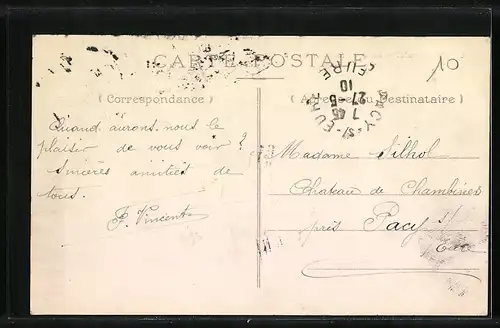 CARTE POSTALE
10
(Correspondance)
(Adresse du Destinataire)
PACY-S-EURE
EURE
7 45
27 5
10
Quand aurons-nous le
plaisir de vous voir ?
Sincères amitiés de
tous.
F. Vincent
Madame Silhol
Chateau de Chambines
près Pacy s/
Eure